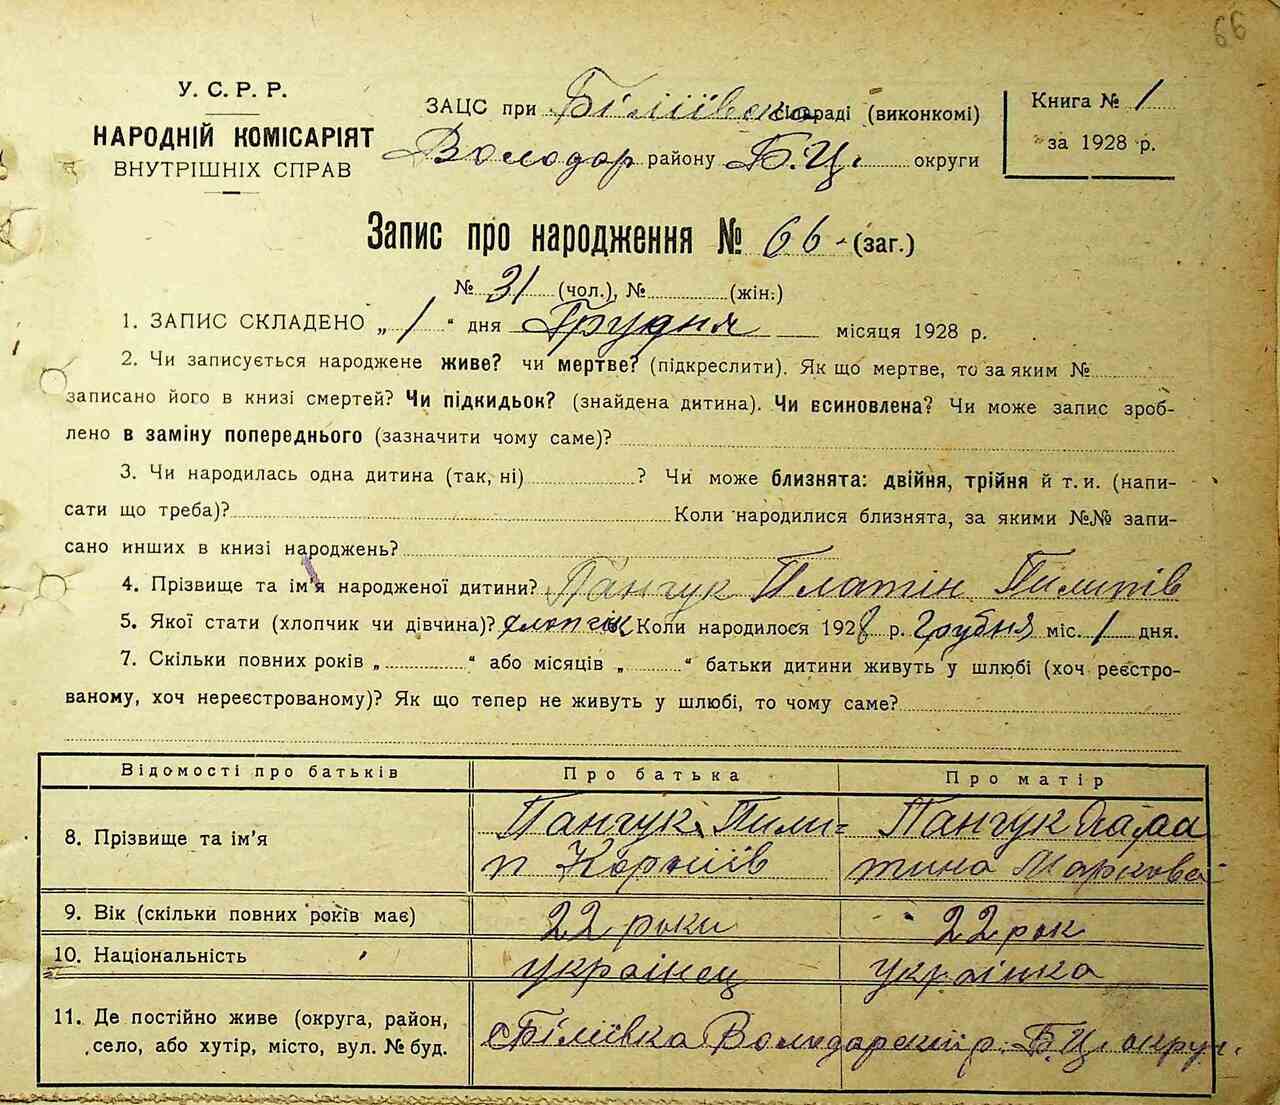 66
У. С. Р. Р.
НАРОДНІЙ КОМІСАРІЯТ
ВНУТРІШНІХ СПРАВ
ЗАЦС при Біліївськ сільраді (виконкомі)
Володар району Б.Ц. округи
Книга № 1
за 1928 р.
Запис про народження № 66 (заг.)
№ 31 (чол.), № (жін.)
1. ЗАПИС СКЛАДЕНО „ 1 “ дня Грудня місяця 1928 р.
2. Чи записується народжене живе? чи мертве? (підкреслити). Як що мертве, то за яким №
записано його в книзі смертей? Чи підкидьок? (знайдена дитина). Чи всиновлена? Чи може запис зроб-
лено в заміну попереднього (зазначити чому саме)?
3. Чи народилась одна дитина (так, ні) ? Чи може близнята: двійня, трійня й т. и. (напи-
сати що треба)? Коли народилися близнята, за якими №№ запи-
сано инших в книзі народжень?
4. Прізвище та ім'я народженої дитини? Панчук Платін Пилипів
5. Якої стати (хлопчик чи дівчина)? хлопчик Коли народилося 1928 р. грудня міс. 1 дня.
7. Скільки повних років „ “ або місяців „ “ батьки дитини живуть у шлюбі (хоч реєстро-
ваному, хоч нереєстрованому)? Як що тепер не живуть у шлюбі, то чому саме?
Відомості про батьків Про батька Про матір
8. Прізвище та ім'я Панчук Пили= Панчук
п Корніїв тина Маркова
9. Вік (скільки повних років має) 22 роки 22 рок
10. Національність українец українка
11. Де постійно живе (округа, район,
село, або хутір, місто, вул. № буд. с Біліївка Володарский р. Б.Ц. округ.